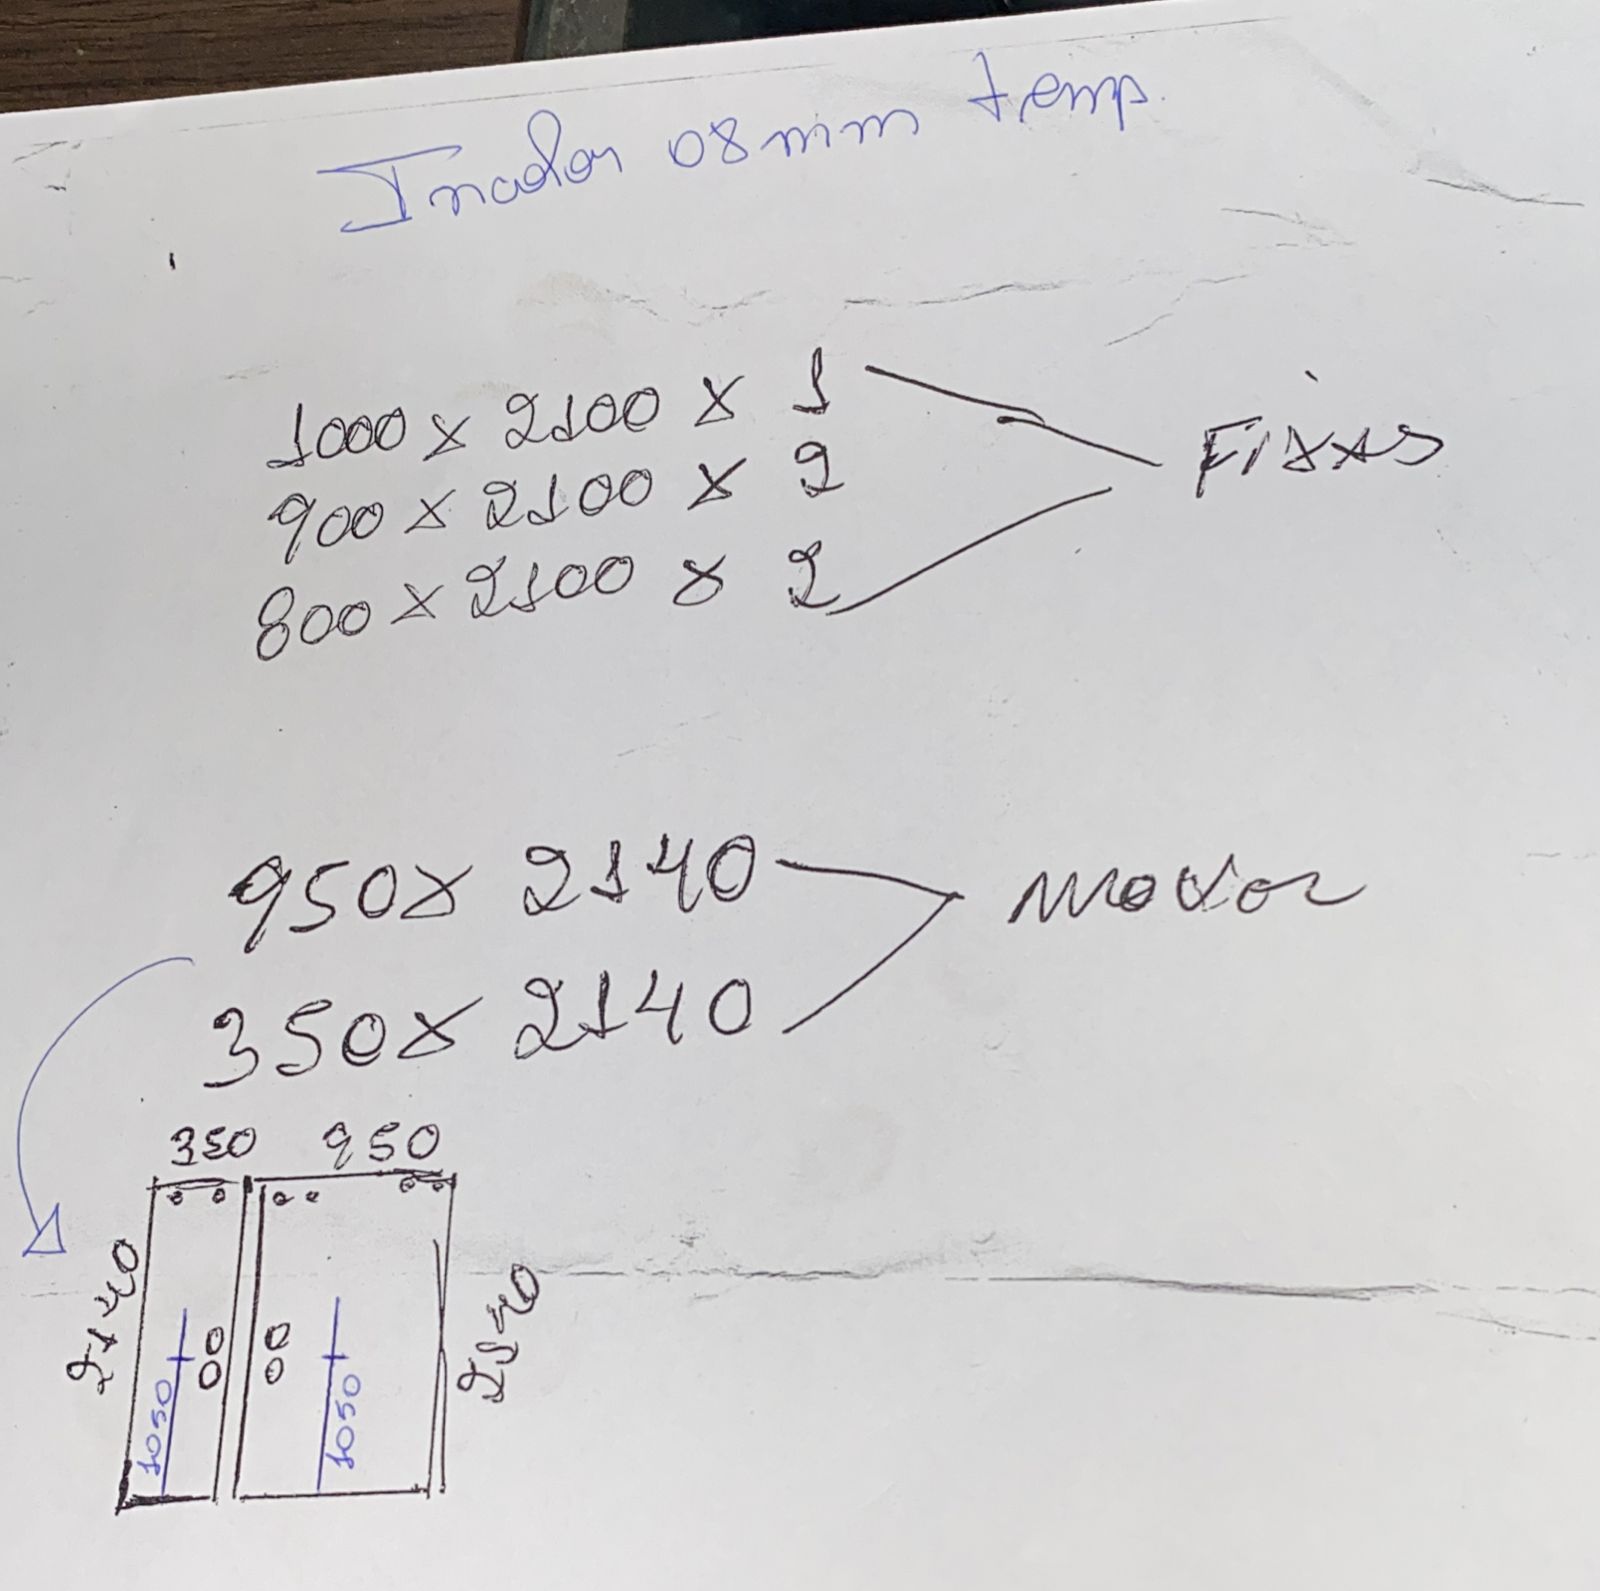 Incolor 08mm temp.
1000 x 2100 x 1
900 x 2100 x 2
800 x 2100 x 2
Fixas
950 x 2140
350 x 2140
350 950
2140
2140
1050
1050